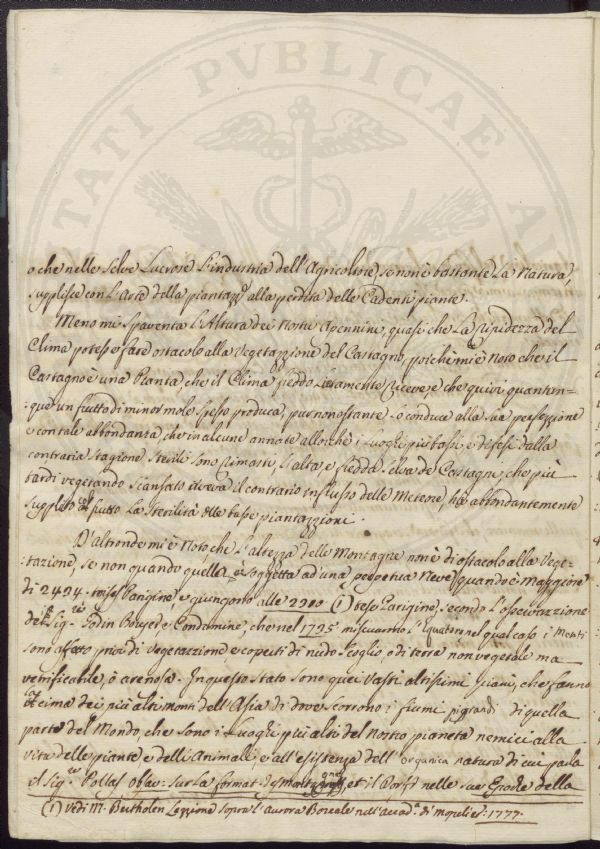 TATI PVBLICAE
o che nelle Selve Lacrose l'industria dell'Agricoltore, se non è bastante La Natura,
supplisce con L'arte della piantazz.e alla perdita delle Cadenti piante.
Meno mi spaventa l'Altura dei Nostri Apennini, quasi che La Rigidezza del
Clima potesse fare ostacolo alla Vegetazzione del Castagno, poichè mi è Noto che il
Castagno è una Pianta, che il Clima freddo Lietamente riceve, e che quivi quantun=
=que un frutto di minor mole spesso produca, pur nonostante lo conduce alla sua perfezzione
e con tale abbondanza, che in alcune annate allorchè i Luoghi più bassi, e difesi dalla
contraria stagione sterili sono rimasti, l'alta, e fredda selva de' Castagni, che più
tardi vegetando scansato aveva il contrario influsso delle Meteore, ha abbondantemente
supplito col frutto La sterilità delle basse piantazzioni.
D'altronde mi è Noto che l'altezza delle Montagne non è di ostacolo alla Vege-
:tazione, se non quando quella è soggetta ad una perpetua Neve, quando è Maggiore
di 2434. toise Parigine, e giungono alle 2200 (1) tese Parigine, secondo l'osservazione
de Sig.ri Godin Bouger e Condamine, che nel 1735 misurarono l'Equatore nel qual caso i Monti
sono affatto privi di Vegetazzione e coperti di nudo scoglio o di terra non vegetale ma
vetrificabile, ò arenosa. In questo stato sono quei Vasti altissimi piani, che fanno
la cima dei più alti monti dell'Asia di dove scorrono i fiumi più grandi di quella
parte del Mondo, che sono i Luoghi più alti del Nostro pianeta nemici alla
vita delle piante e delli Animali, e all'esistenza dell' organica natura di cui parla
il Sig.re Pallas osser: sur La format. des montagnes, et il Buffon nelle sue Epoche della
(1) Vedi M. Bertholon Lezzione sopra l'aurora Boreale nell'accad.a di Monpelier. 1777.